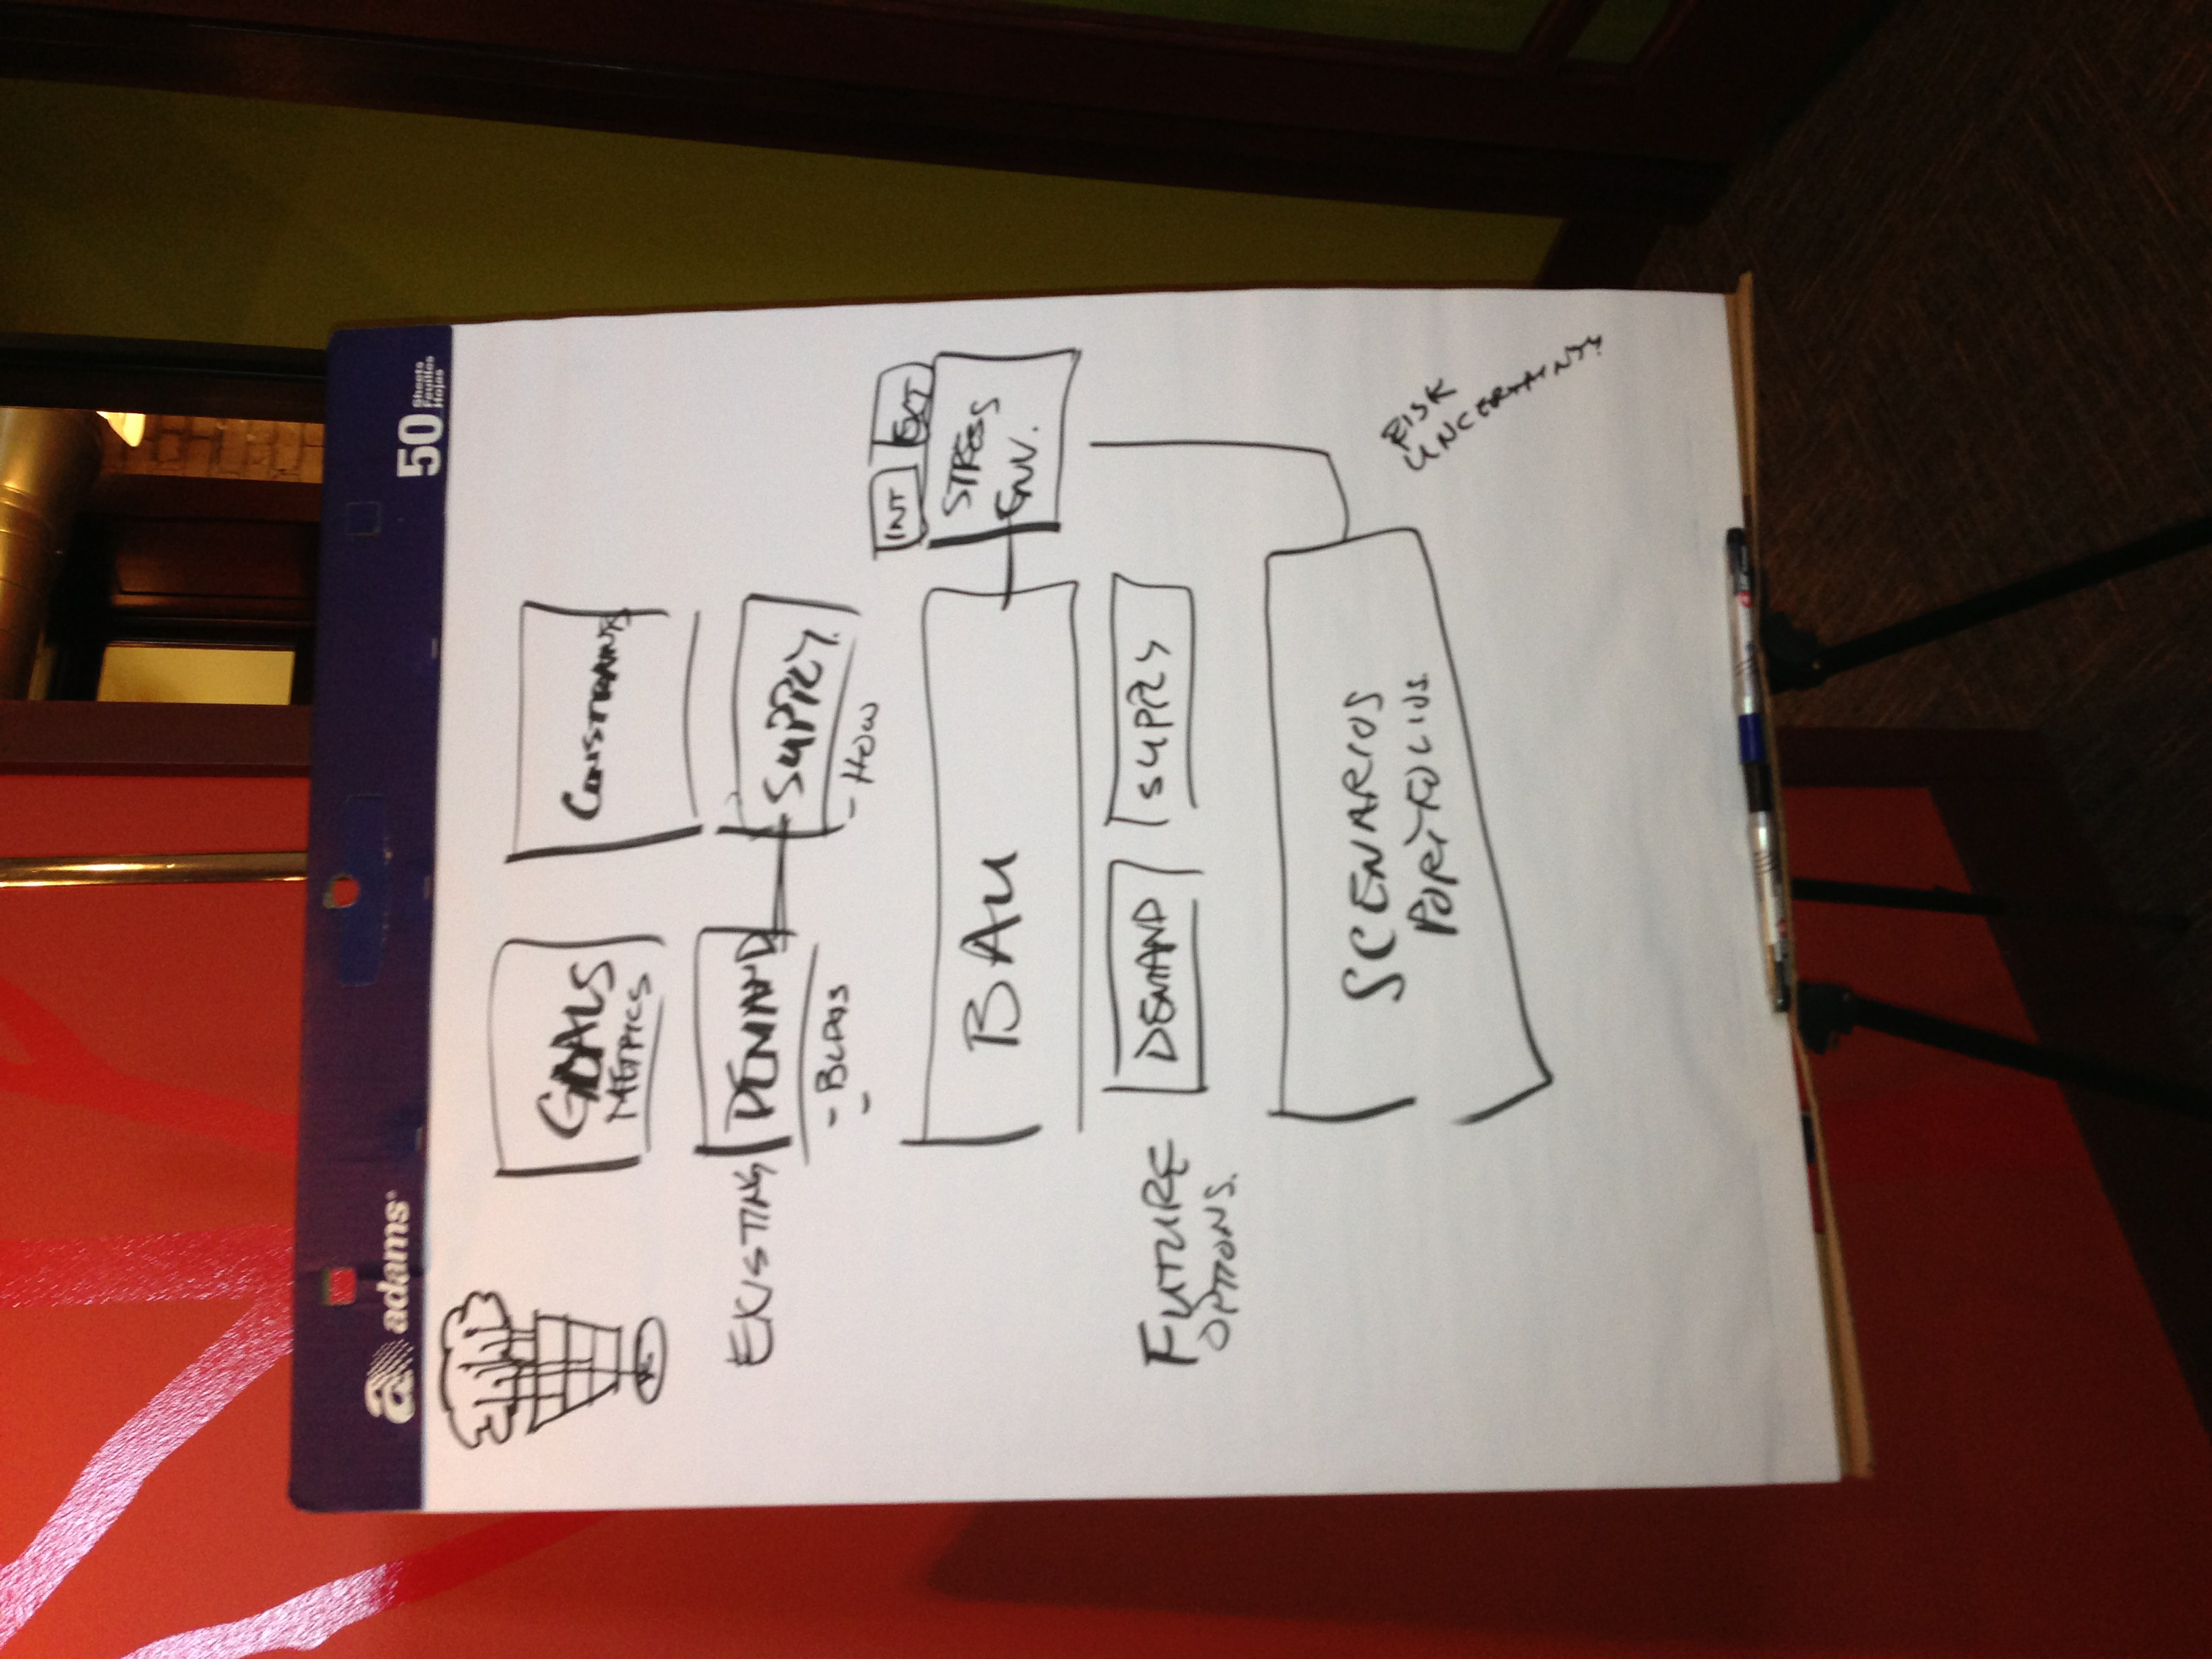 adams
50 Sheets
Feuilles
Hojas
GOALS
METRICS
CONSTRAINTS
EXISTING
DEMAND
SUPPLY.
- BLDGS
-
- HOW
BAU
INT
EXT
STRESS
ENV.
FUTURE
OPTIONS.
DEMAND
SUPPLY
SCENARIOS
PORTFOLIOS.
RISK
UNCERTAINTY